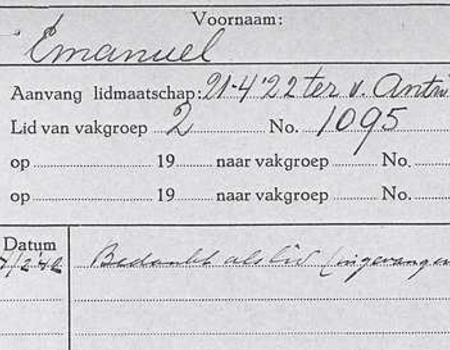 Voornaam:
Emanuel
Aanvang lidmaatschap: 21-4'22 ter v. Antw
Lid van vakgroep 2 No. 1095
op 19 naar vakgroep No.
op 19 naar vakgroep No.
Datum
Bedankt als lid (ingevangen